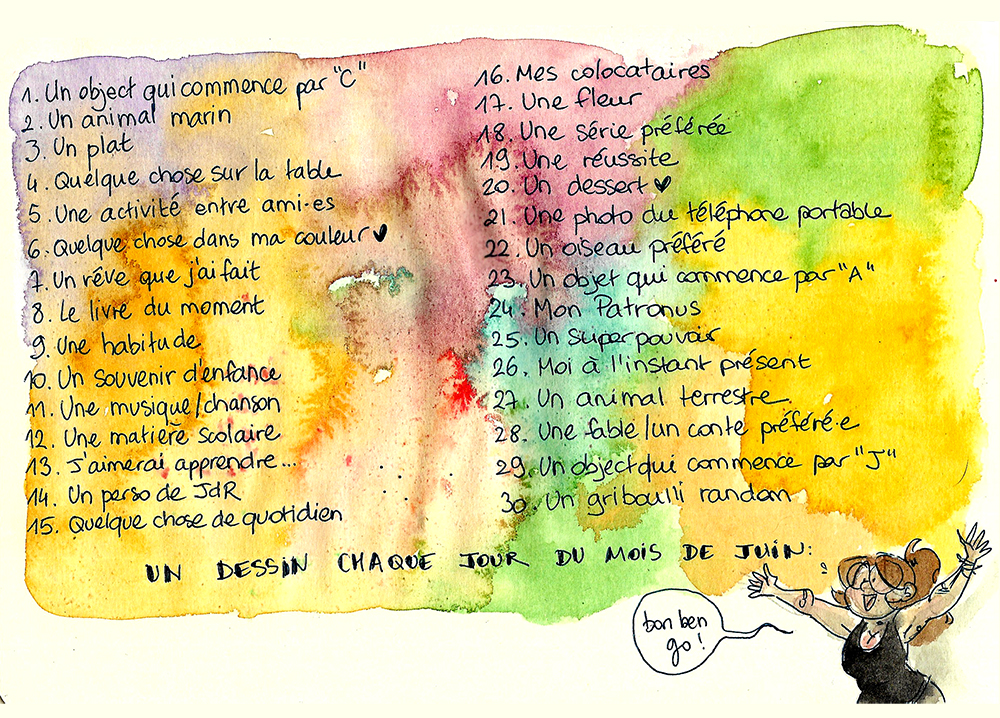 1. Un object qui commence par "C"
2. Un animal marin
3. Un plat
4. Quelque chose sur la table
5. Une activité entre ami·es
6. Quelque chose dans ma couleur♥
7. Un rêve que j'ai fait
8. Le livre du moment
9. Une habitude
10. Un souvenir d'enfance
11. Une musique/chanson
12. Une matière scolaire
13. J'aimerai apprendre...
14. Un perso de JdR
15. Quelque chose de quotidien
16. Mes colocataires
17. Une fleur
18. Une série préférée
19. Une réussite
20. Un dessert ♥
21. Une photo du téléphone portable
22. Un oiseau préféré
23. Un objet qui commence par "A"
24. Mon Patronus
25. Un super pouvoir
26. Moi à l'instant présent
27. Un animal terrestre.
28. Une fable/un conte préféré·e
29. Un object qui commence par "J"
30. Un griboulli random
UN DESSIN CHAQUE JOUR DU MOIS DE JUIN:
bon ben
go!